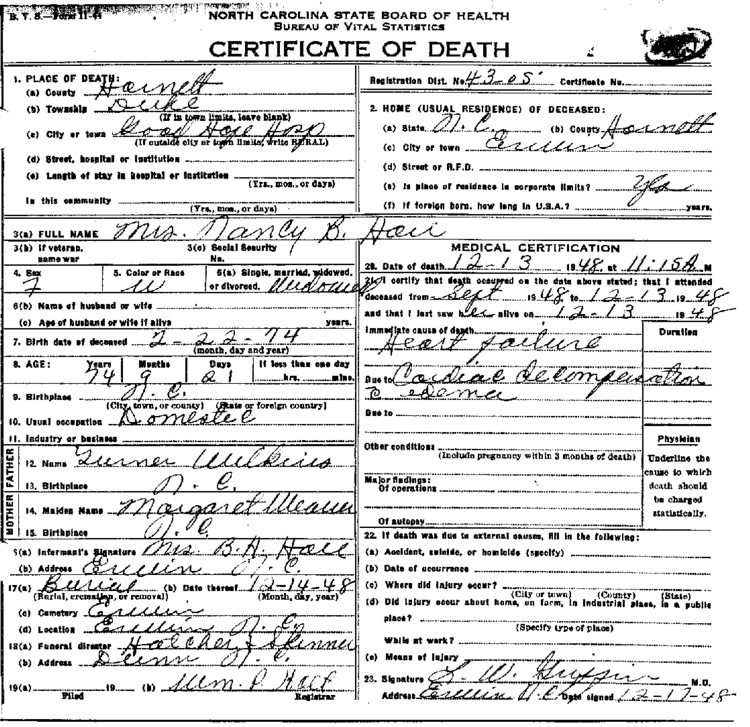 B. V. S.—Form 11-44
NORTH CAROLINA STATE BOARD OF HEALTH
BUREAU OF VITAL STATISTICS
CERTIFICATE OF DEATH
1. PLACE OF DEATH:
(a) County Harnett
(b) Township Duke
(If in town limits, leave blank)
(c) City or town Good Hope Hosp
(If outside city or town limits, write RURAL)
(d) Street, hospital or institution
(e) Length of stay in hospital or institution
(Yrs., mos., or days)
In this community
(Yrs., mos., or days)
Registration Dist. No. 43-05 Certificate No.
2. HOME (USUAL RESIDENCE) OF DECEASED:
(a) State N.C. (b) County Harnett
(c) City or town Erwin
(d) Street or R.F.D.
(e) Is place of residence in corporate limits? Yes
(f) If foreign born, how long in U.S.A.? years.
3(a) FULL NAME Mrs. Nancy B.
3(b) If veteran, name war
3(c) Social Security No.
4. Sex F
5. Color or Race W
6(a) Single, married, widowed, or divorced. Widowed
6(b) Name of husband or wife
(c) Age of husband or wife if alive years.
7. Birth date of deceased 2-22-74
(month, day and year)
8. AGE: Years Months Days If less than one day
74 9 21 hrs. mins.
9. Birthplace N.C.
(City, town, or county) (State or foreign country)
10. Usual occupation Domestic
11. Industry or business
FATHER
12. Name Turner Wilkins
13. Birthplace N.C.
MOTHER
14. Maiden Name Margaret Weaver
15. Birthplace N.C.
16(a) Informant's Signature Mrs. B.A.
(b) Address Erwin N.C.
17(a) Burial (b) Date thereof 12-14-48
(Burial, cremation, or removal) (Month, day, year)
(c) Cemetery Erwin
(d) Location Erwin N.C.
18(a) Funeral director Hatcher & Skinner
(b) Address Dunn N.C.
19(a) 19 (b) Wm. P. Holt
Filed Registrar
MEDICAL CERTIFICATION
20. Date of death 12-13 1948, at 11:15 A M
21. I certify that death occurred on the date above stated; that I attended
deceased from Sept 1948, to 12-13 1948
and that I last saw her alive on 12-13 1948
Immediate cause of death Duration
Heart failure
Due to Cardiac decompensation
c̄ edema
Due to
Other conditions
(Include pregnancy within 3 months of death)
Major findings:
Of operations
Of autopsy
Physician
Underline the
cause to which
death should
be charged
statistically.
22. If death was due to external causes, fill in the following:
(a) Accident, suicide, or homicide (specify)
(b) Date of occurrence
(c) Where did injury occur?
(City or town) (County) (State)
(d) Did injury occur about home, on farm, in industrial place, in a public
place?
(Specify type of place)
While at work?
(e) Means of injury
23. Signature Griffin M.D.
Address Erwin N.C. Date signed 12-17-48